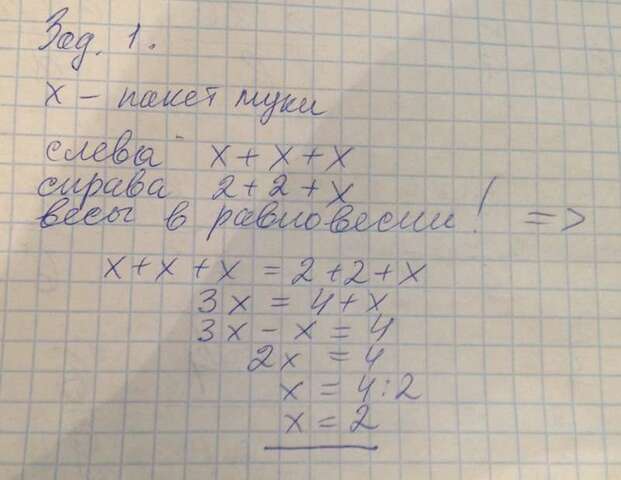 Зад. 1.
x - пакет муки
слева x + x + x
справа 2 + 2 + x
весы в равновесии! =>
x + x + x = 2 + 2 + x
3x = 4 + x
3x - x = 4
2x = 4
x = 4 : 2
x = 2